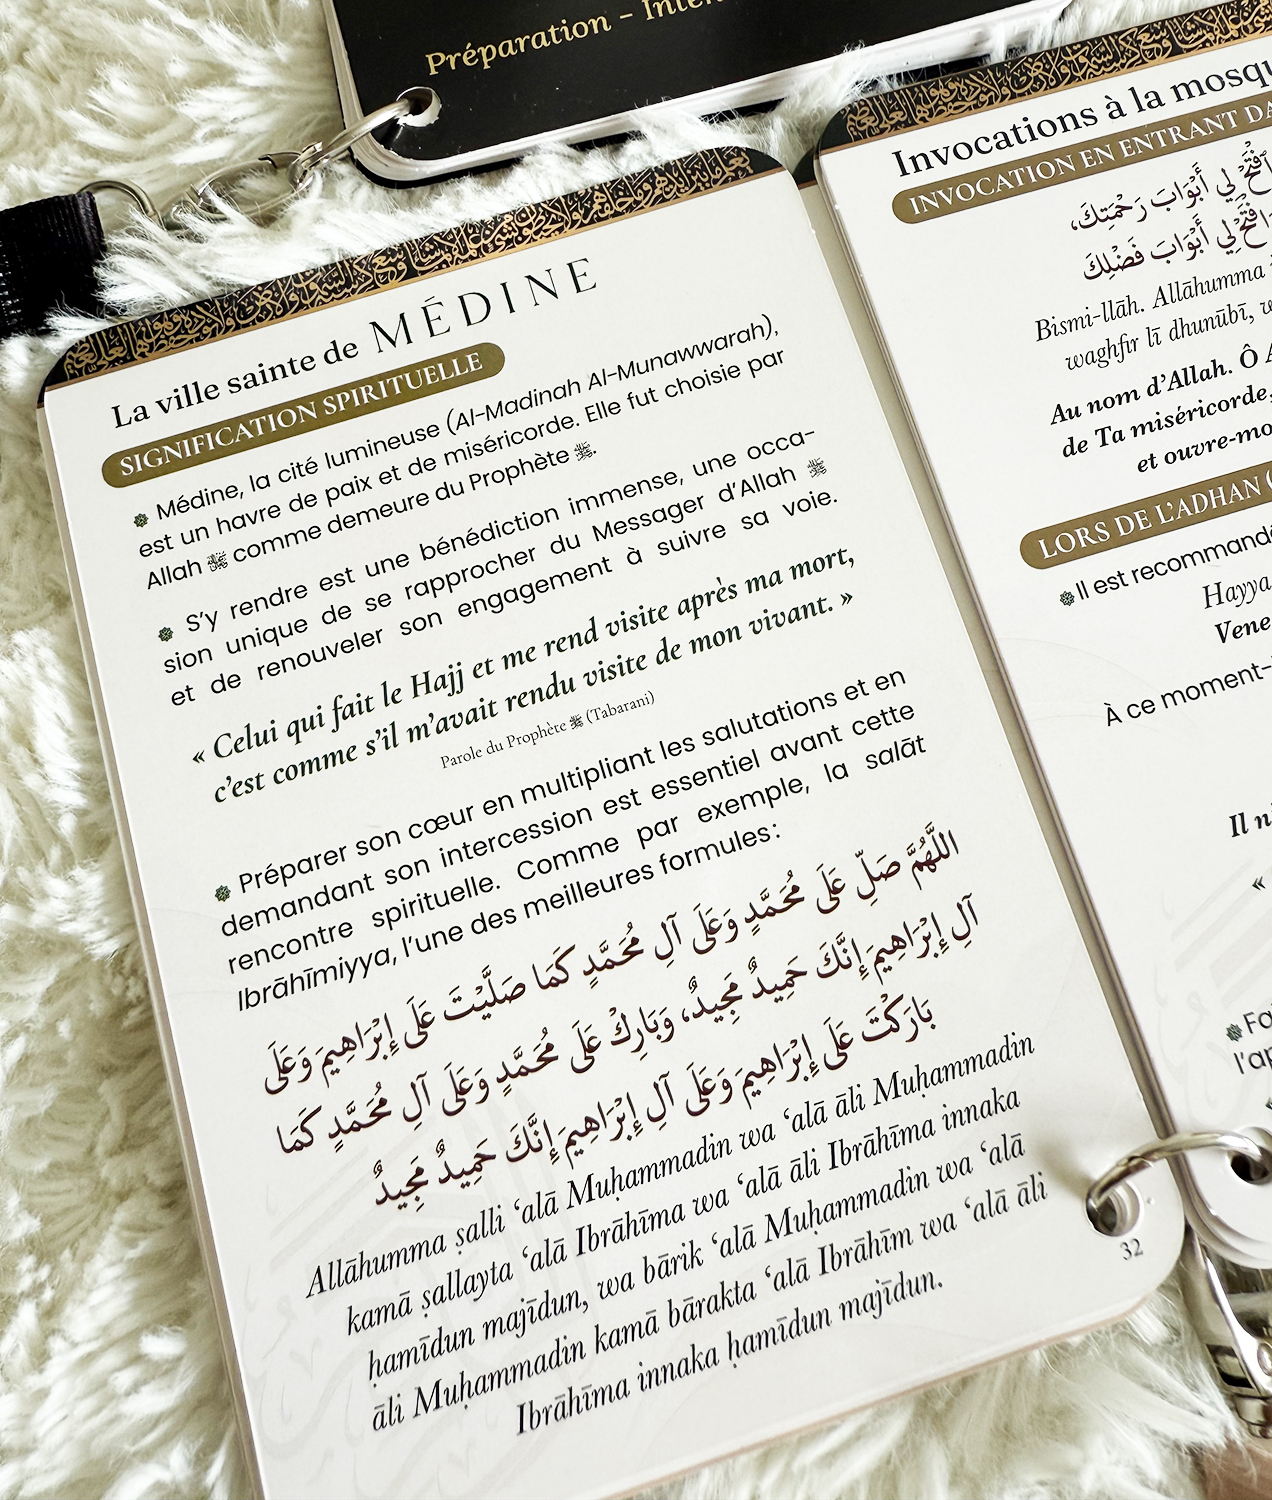 Préparation –
La ville sainte de MÉDINE
SIGNIFICATION SPIRITUELLE
Médine, la cité lumineuse (Al-Madinah Al-Munawwarah),
est un havre de paix et de miséricorde. Elle fut choisie par
Allah ﷻ comme demeure du Prophète ﷺ.
S'y rendre est une bénédiction immense, une occa-
sion unique de se rapprocher du Messager d'Allah ﷺ
et de renouveler son engagement à suivre sa voie.
« Celui qui fait le Hajj et me rend visite après ma mort,
c'est comme s'il m'avait rendu visite de mon vivant. »
Parole du Prophète ﷺ (Tabarani)
Préparer son cœur en multipliant les salutations et en
demandant son intercession est essentiel avant cette
rencontre spirituelle. Comme par exemple, la salāt
Ibrāhīmiyya, l'une des meilleures formules :
اللَّهُمَّ صَلِّ عَلَى مُحَمَّدٍ وَعَلَى آلِ مُحَمَّدٍ كَمَا صَلَّيْتَ عَلَى إِبْرَاهِيمَ وَعَلَى
آلِ إِبْرَاهِيمَ إِنَّكَ حَمِيدٌ مَجِيدٌ، وَبَارِكْ عَلَى مُحَمَّدٍ وَعَلَى آلِ مُحَمَّدٍ كَمَا
بَارَكْتَ عَلَى إِبْرَاهِيمَ وَعَلَى آلِ إِبْرَاهِيمَ إِنَّكَ حَمِيدٌ مَجِيدٌ
Allāhumma ṣalli ‘alā Muḥammadin wa ‘alā āli Muḥammadin
kamā ṣallayta ‘alā Ibrāhīma wa ‘alā āli Ibrāhīma innaka
ḥamīdun majīdun, wa bārik ‘alā Muḥammadin wa ‘alā
āli Muḥammadin kamā bārakta ‘alā Ibrāhīm wa ‘alā āli
Ibrāhīma innaka ḥamīdun majīdun.
32
Invocations à la
INVOCATION EN ENTRANT
افْتَحْ لِي أَبْوَابَ رَحْمَتِكَ،
افْتَحْ لِي أَبْوَابَ فَضْلِكَ
Bismi-llāh. Allāhumma
waghfir lī dhunūbī,
Au nom d'Allah. Ô
de Ta miséricorde,
et
LORS DE L'ADHAN
Il est
Hayya
À ce
Il
«